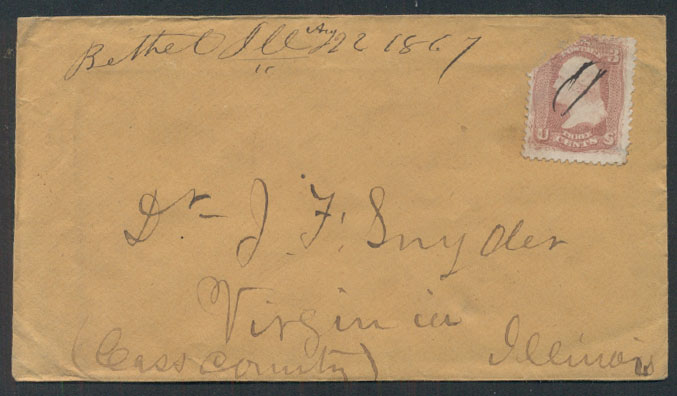 Bethel Ill Aug 22 1867
U THREE CENTS S
Dr J. F. Snyder
Virginia
(Cass county) Illinois